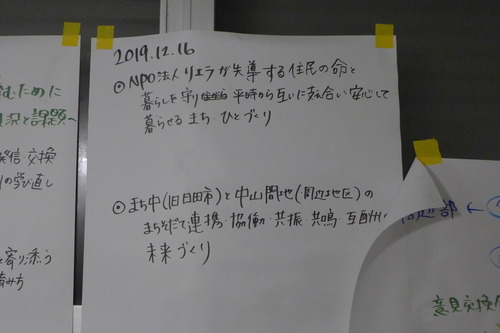 2019.12.16
◎NPO法人リエラが先導する住民の命と
暮らしを守り 平時から互いに支え合い安心して
暮らせるまち・ひとづくり
◎まち中(旧日田市)と中山間地(周辺地区)の
まちそだて連携・協働・共振・共鳴・互助
未来づくり
むために
況と課題〜
発信・交換
の学び直し
と寄り添う
積みち
周辺部 ←
意見交換